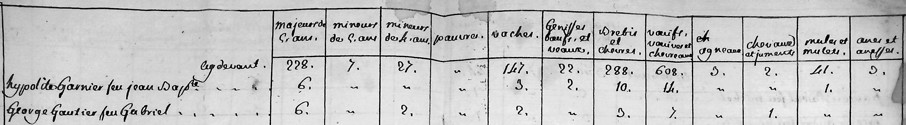 majeurs de 5 ans. mineurs de 5 ans mineurs de ans. pauvres. vaches. Genisses boeufs et veaux. brebis et chevres. et agneaux chevaux et juments mules et mulets. anes et anesses.
cy devant. 228. 7. 27. " 147. 22. 288. 608. 3. 2. 41. 3.
hypolite Garnier feu jean Bapte . . . 6. " " " 3. 2. 10. 14. " " 1. "
George Gautier feu Gabriel . . . . 6. " 2. " 2. " 3. 7. " 1. " "